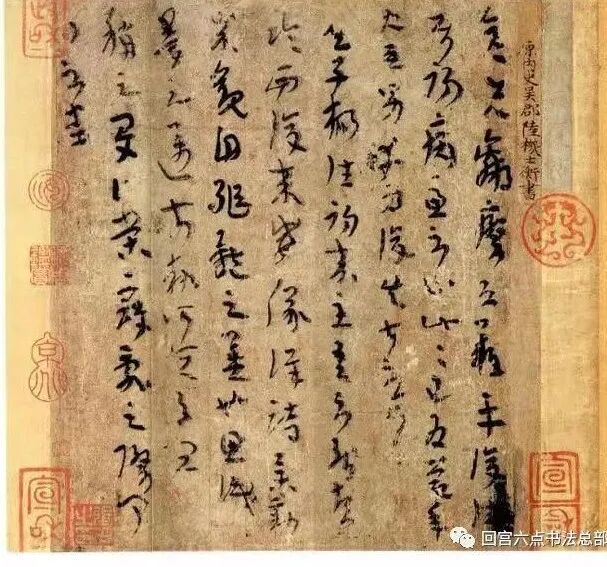 原內史吳郡陸機士衡書
先羸瘵恐難平復
初病慮不止此此已為慶承
使唯男幸為復失前憂耳
吳子楊往初來主吾不能盡
臨西復來威儀詳跱舉動
成觀自軀體之美也思識
量之邁前執所恒有宜
稱之夏伯榮寇亂之際聞
問不悉
回宫六点书法总部